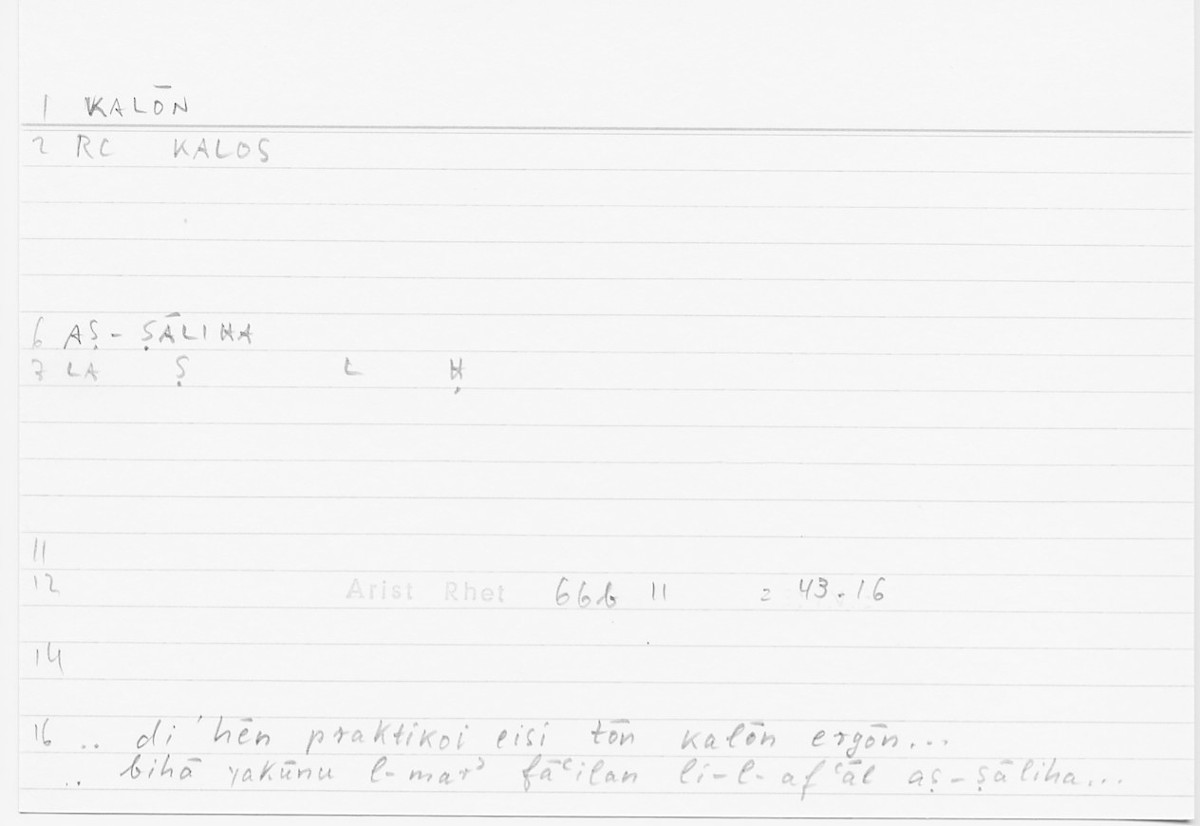 1 KALŌN
2 RC KALOS
6 AṢ-ṢĀLIḤA
7 LA Ṣ L Ḥ
11
12 Arist Rhet 66b 11 = 43.16
14
16 .. di'hēn praktikoi eisi tōn kalōn ergōn...
.. bihā yakūnu l-marʾ fāʿilan li-l-afʿāl aṣ-ṣāliha...